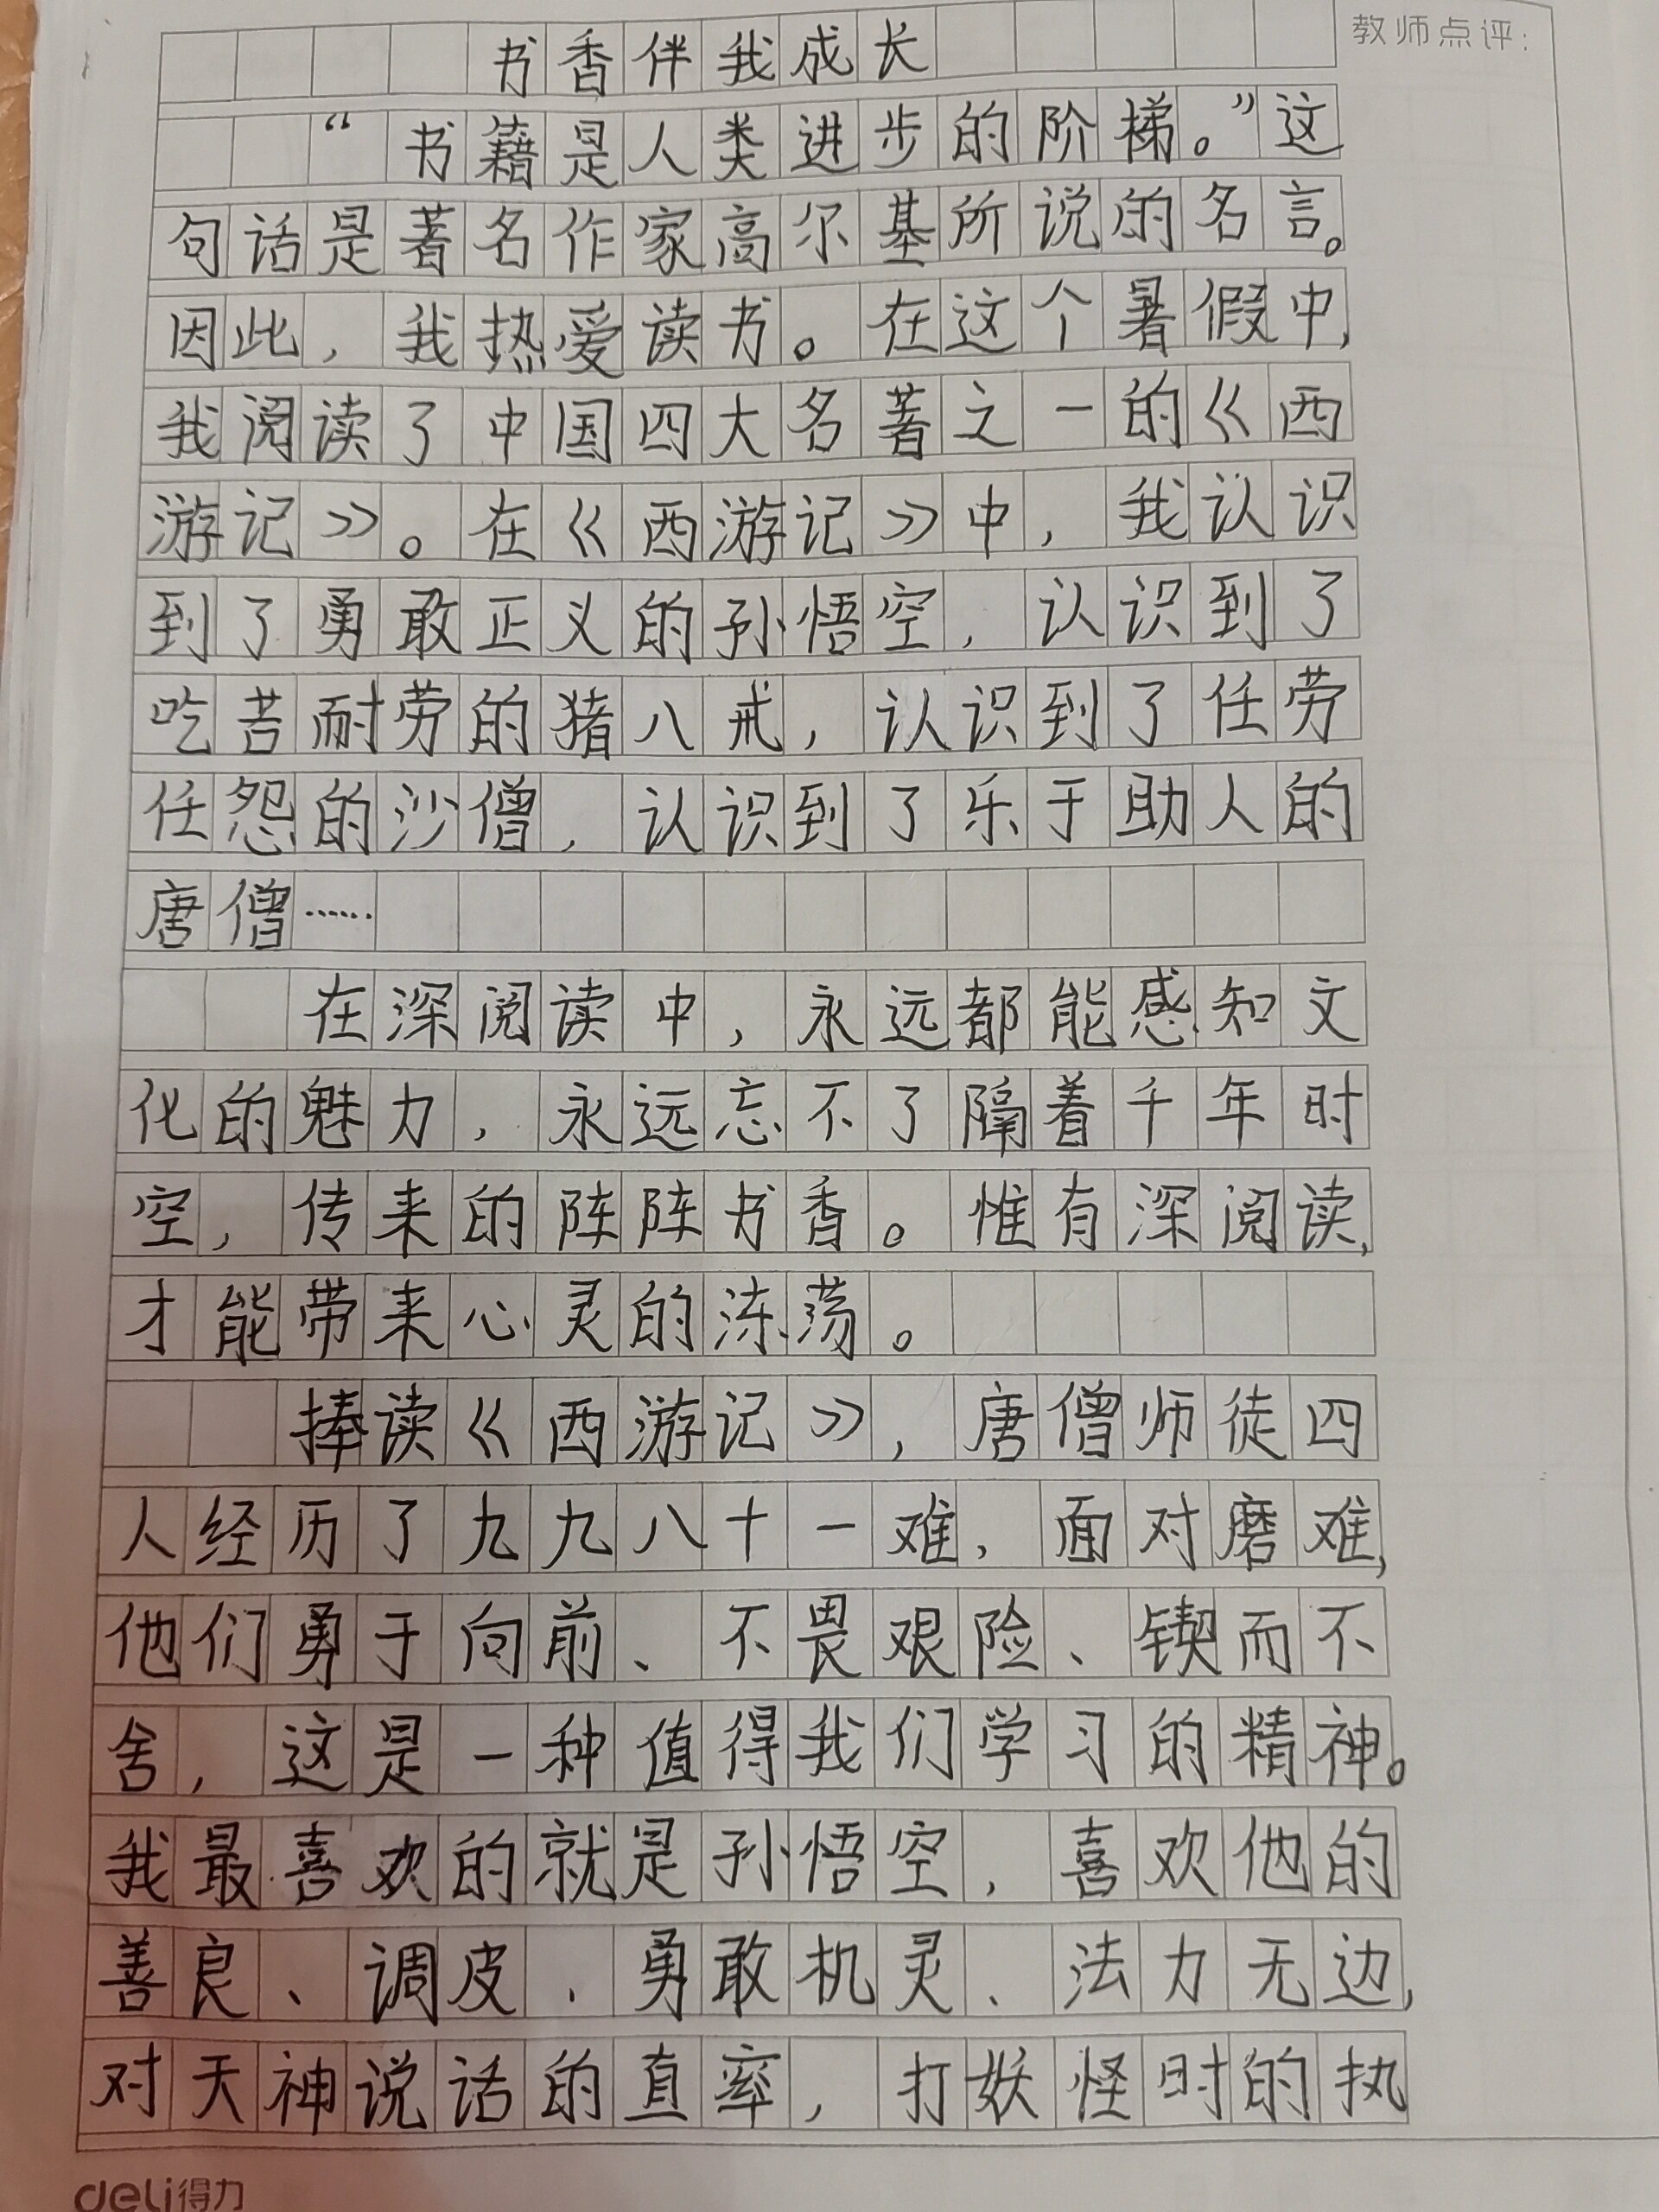 书香伴我成长
教师点评:
“书籍是人类进步的阶梯。”这
句话是著名作家高尔基所说的名言。
因此，我热爱读书。在这个暑假中，
我阅读了中国四大名著之一的《西
游记》。在《西游记》中，我认识
到了勇敢正义的孙悟空，认识到了
吃苦耐劳的猪八戒，认识到了任劳
任怨的沙僧，认识到了乐于助人的
唐僧……
在深阅读中，永远都能感知文
化的魅力，永远忘不了隔着千年时
空，传来的阵阵书香。惟有深阅读，
才能带来心灵的涤荡。
捧读《西游记》，唐僧师徒四
人经历了九九八十一难，面对磨难，
他们勇于向前、不畏艰险、锲而不
舍，这是一种值得我们学习的精神。
我最喜欢的就是孙悟空，喜欢他的
善良、调皮、勇敢机灵、法力无边，
对天神说话的直率，打妖怪时的执
deli得力